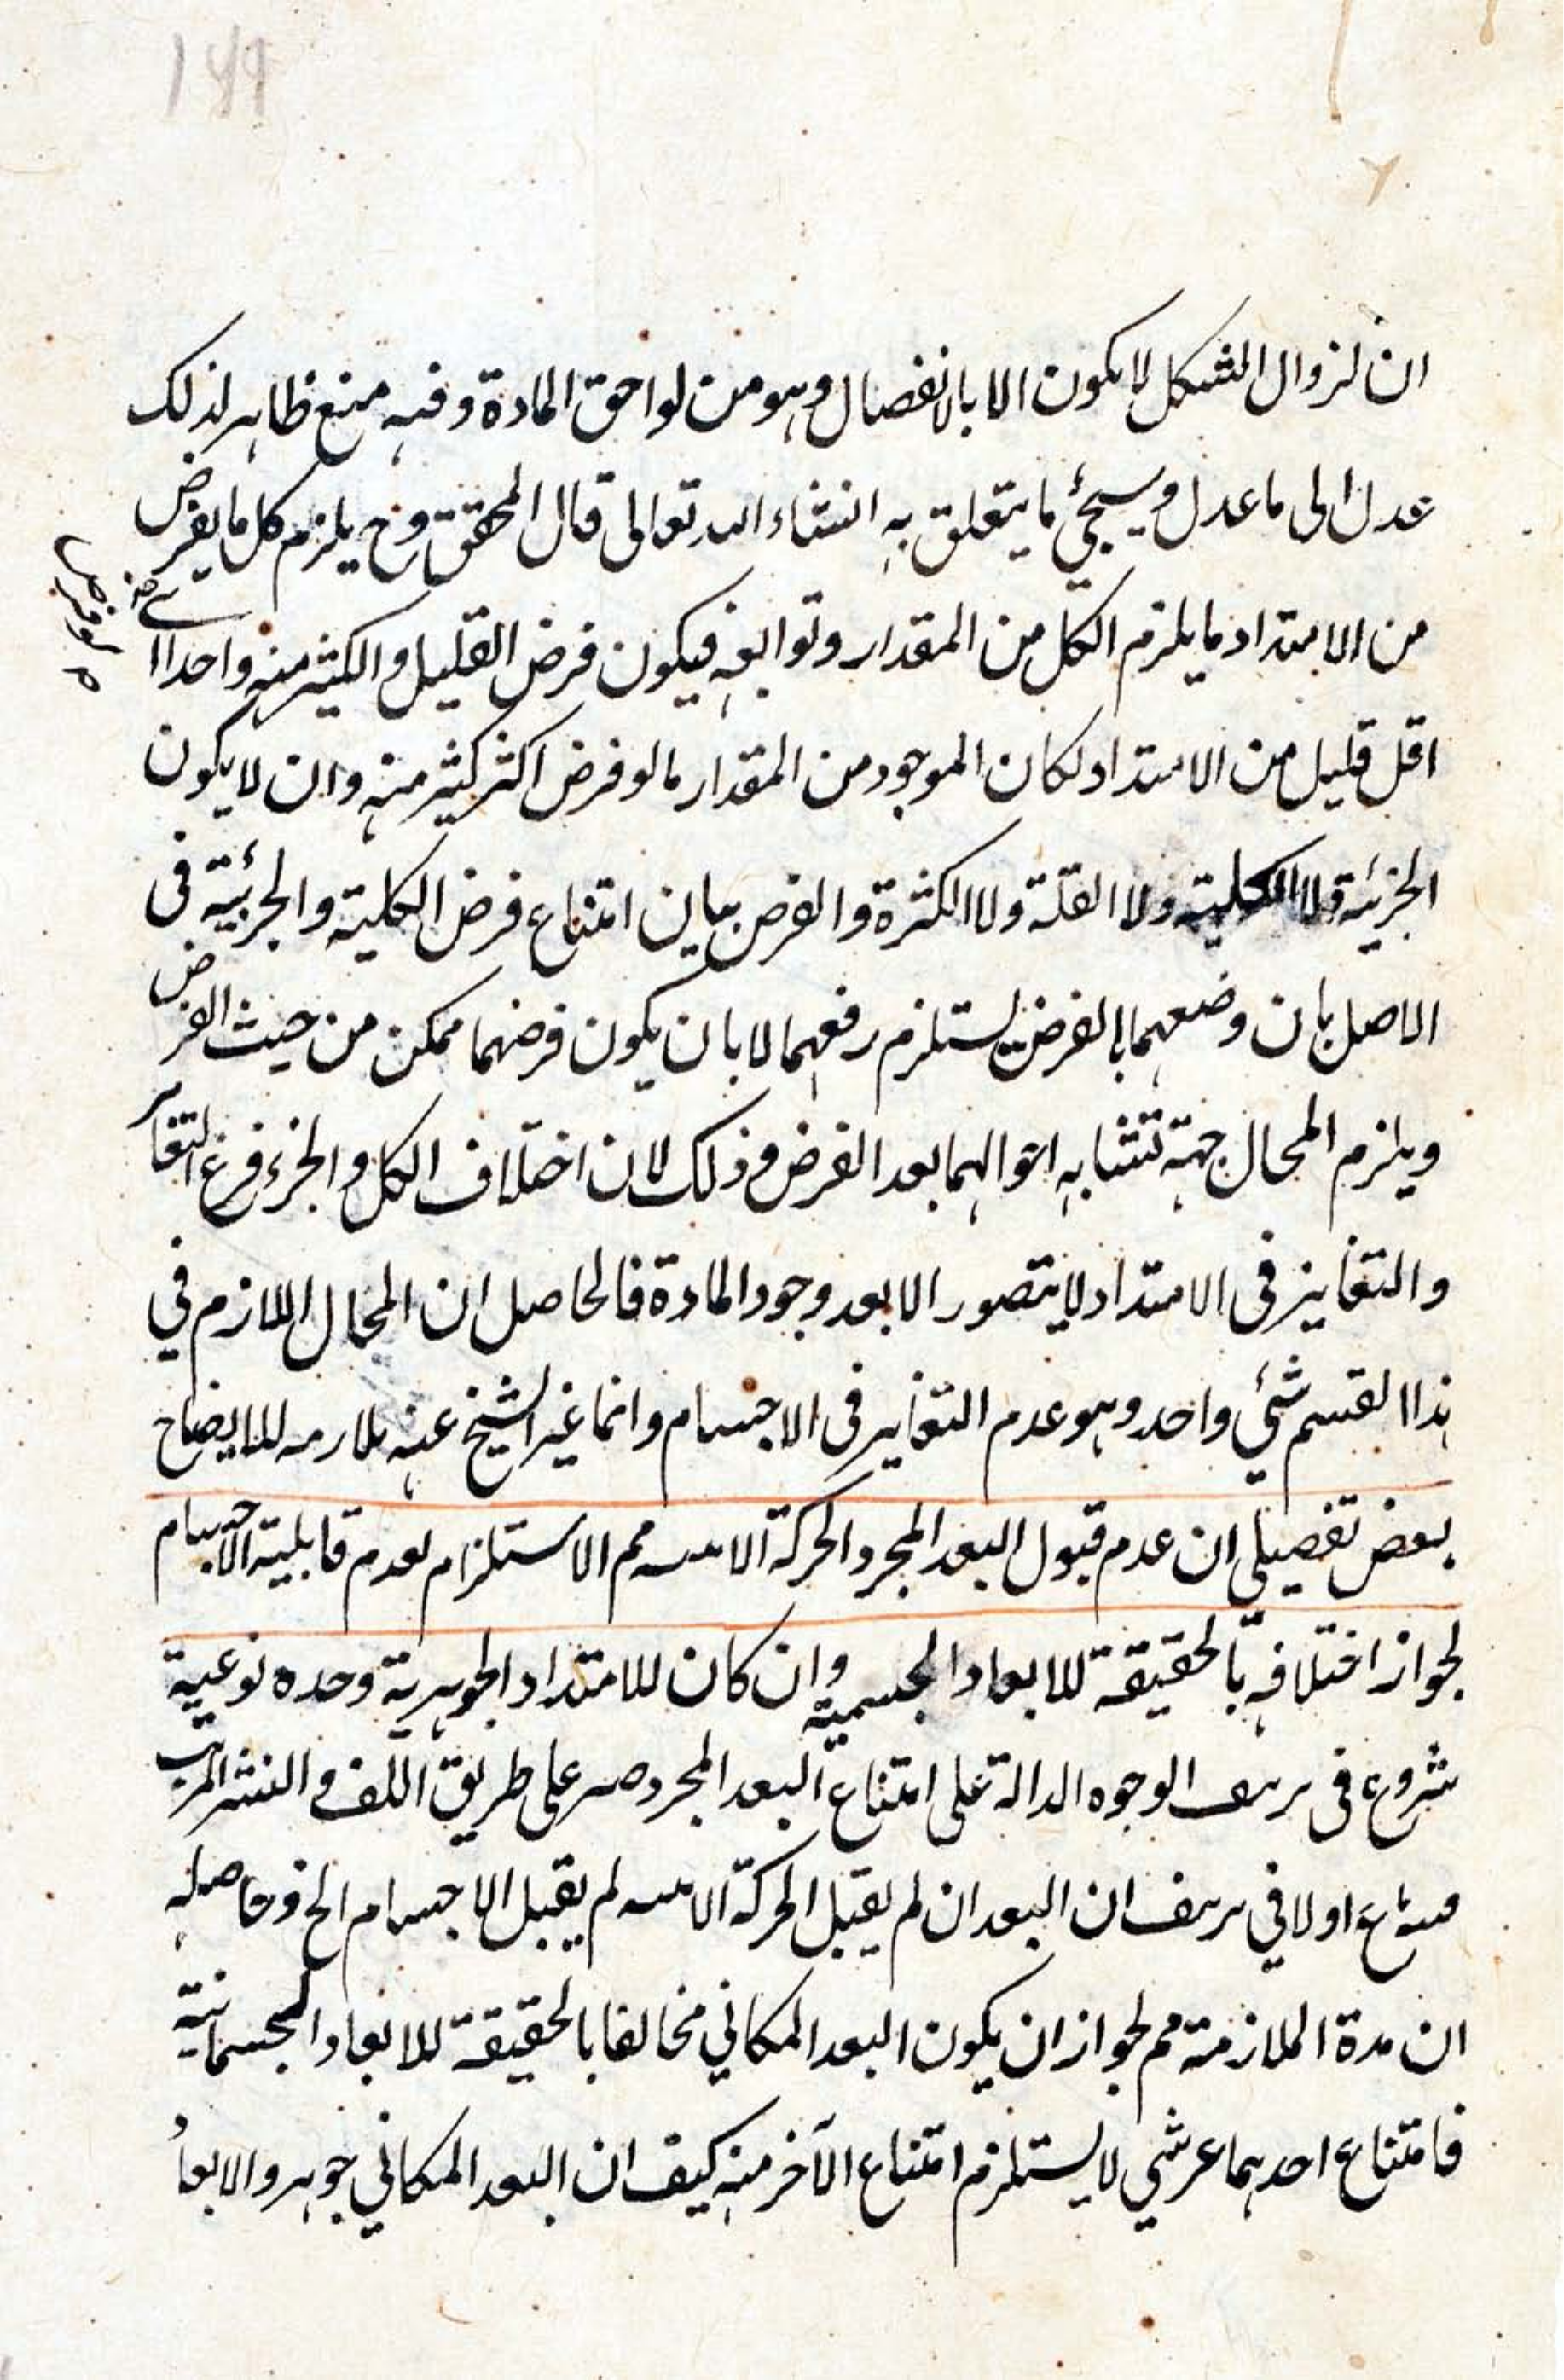 ان لزوال الشكل لا يكون الا بالانفصال وهو من لواحق المادة وفيه منع ظاهر لذلك
عدل الى ما عدل وسيجئ ما يتعلق به انشاء الله تعالى قال المحقق وح يلزم كل ما يفرض
من الامتداد ما يلزم الكل من المقدار وتوابعه فيكون فرض القليل والكثير منه واحدا ا
اقل قليل من الامتداد لكان الموجود من المقدار ما لو فرض اكثر كثير منه وان لا يكون
الجزئية ولا الكلية ولا القلة ولا الكثرة والغرض بيان امتناع فرض الكلية والجزئية في
الاصل بان وضعهما بالفرض يستلزم رفعهما لا بان يكون فرضهما ممكن من حيث الفرض
ويلزم المحال جهة تشابه احوالهما بعد الفرض وذلك لان اختلاف الكل والجزء فرع التغاير
والتغاير في الامتداد لا يتصور الا بعد وجود المادة فالحاصل ان المحال اللازم في
هذا القسم شئ واحد وهو عدم التغاير في الاجسام وانما غير الشيخ عنه للايضاح
بعض تفصيلي ان عدم قبول البعد المجرد الحركة الاينية مم الاستلزام لعدم قابلية الاجسام
لجواز اختلافه بالحقيقة للابعاد الجسمية وان كان للامتداد الجوهرية وحده نوعية
شروع في تزييف الوجوه الدالة على امتناع البعد المجرد على طريق اللف والنشر المرتب
اولا في تزييف ان البعد ان لم يقبل الحركة الاينية لم يقبل الاجسام الخ وحاصله
ان مدة الملازمة مم لجواز ان يكون البعد المكاني مخالفا بالحقيقة للابعاد الجسمانية
فامتناع احدهما عر شي لا يستلزم امتناع الآخر منه كيف ان البعد المكاني جوهر والابعاد